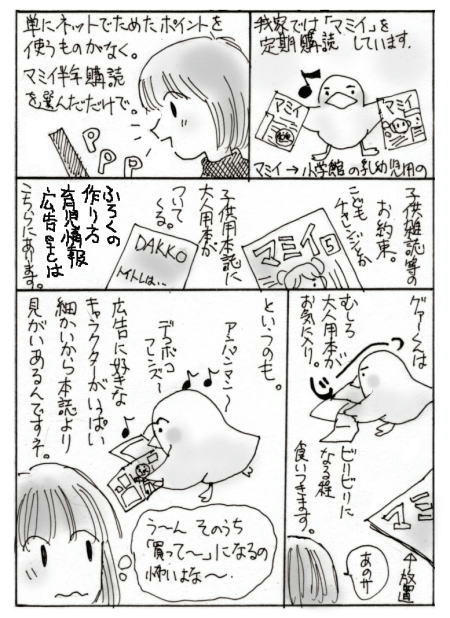 我家では「マミイ」を
定期購読しています。
マミイ
マミイ
マミイ→小学館の乳幼児用の
単にネットでためたポイントを
使うものがなく。
マミイ半年購読
を選んだだけで。
P
P
P
子供雑誌等の
お約束。
こども
チャレンジとか
マミイ
5
子供用本誌に
大人用本が
ついて
くる。
DAKKO
ふろくの
作り方
育児情報
広告etcは
こちらにあります。
グァ〜くんは
むしろ
大人用本が
お気に入り。
ビリビリに
なる程
食いつきます。
マミイ
↑放置
あのサ
といつのも。
アンパンマン〜
デコボコ
フレンズ〜
広告に好きな
キャラクターがいっぱい
細かいから本誌より
見がいあるんですネ。
う〜ん そのうち
「買って〜」になるの
怖いよな〜。